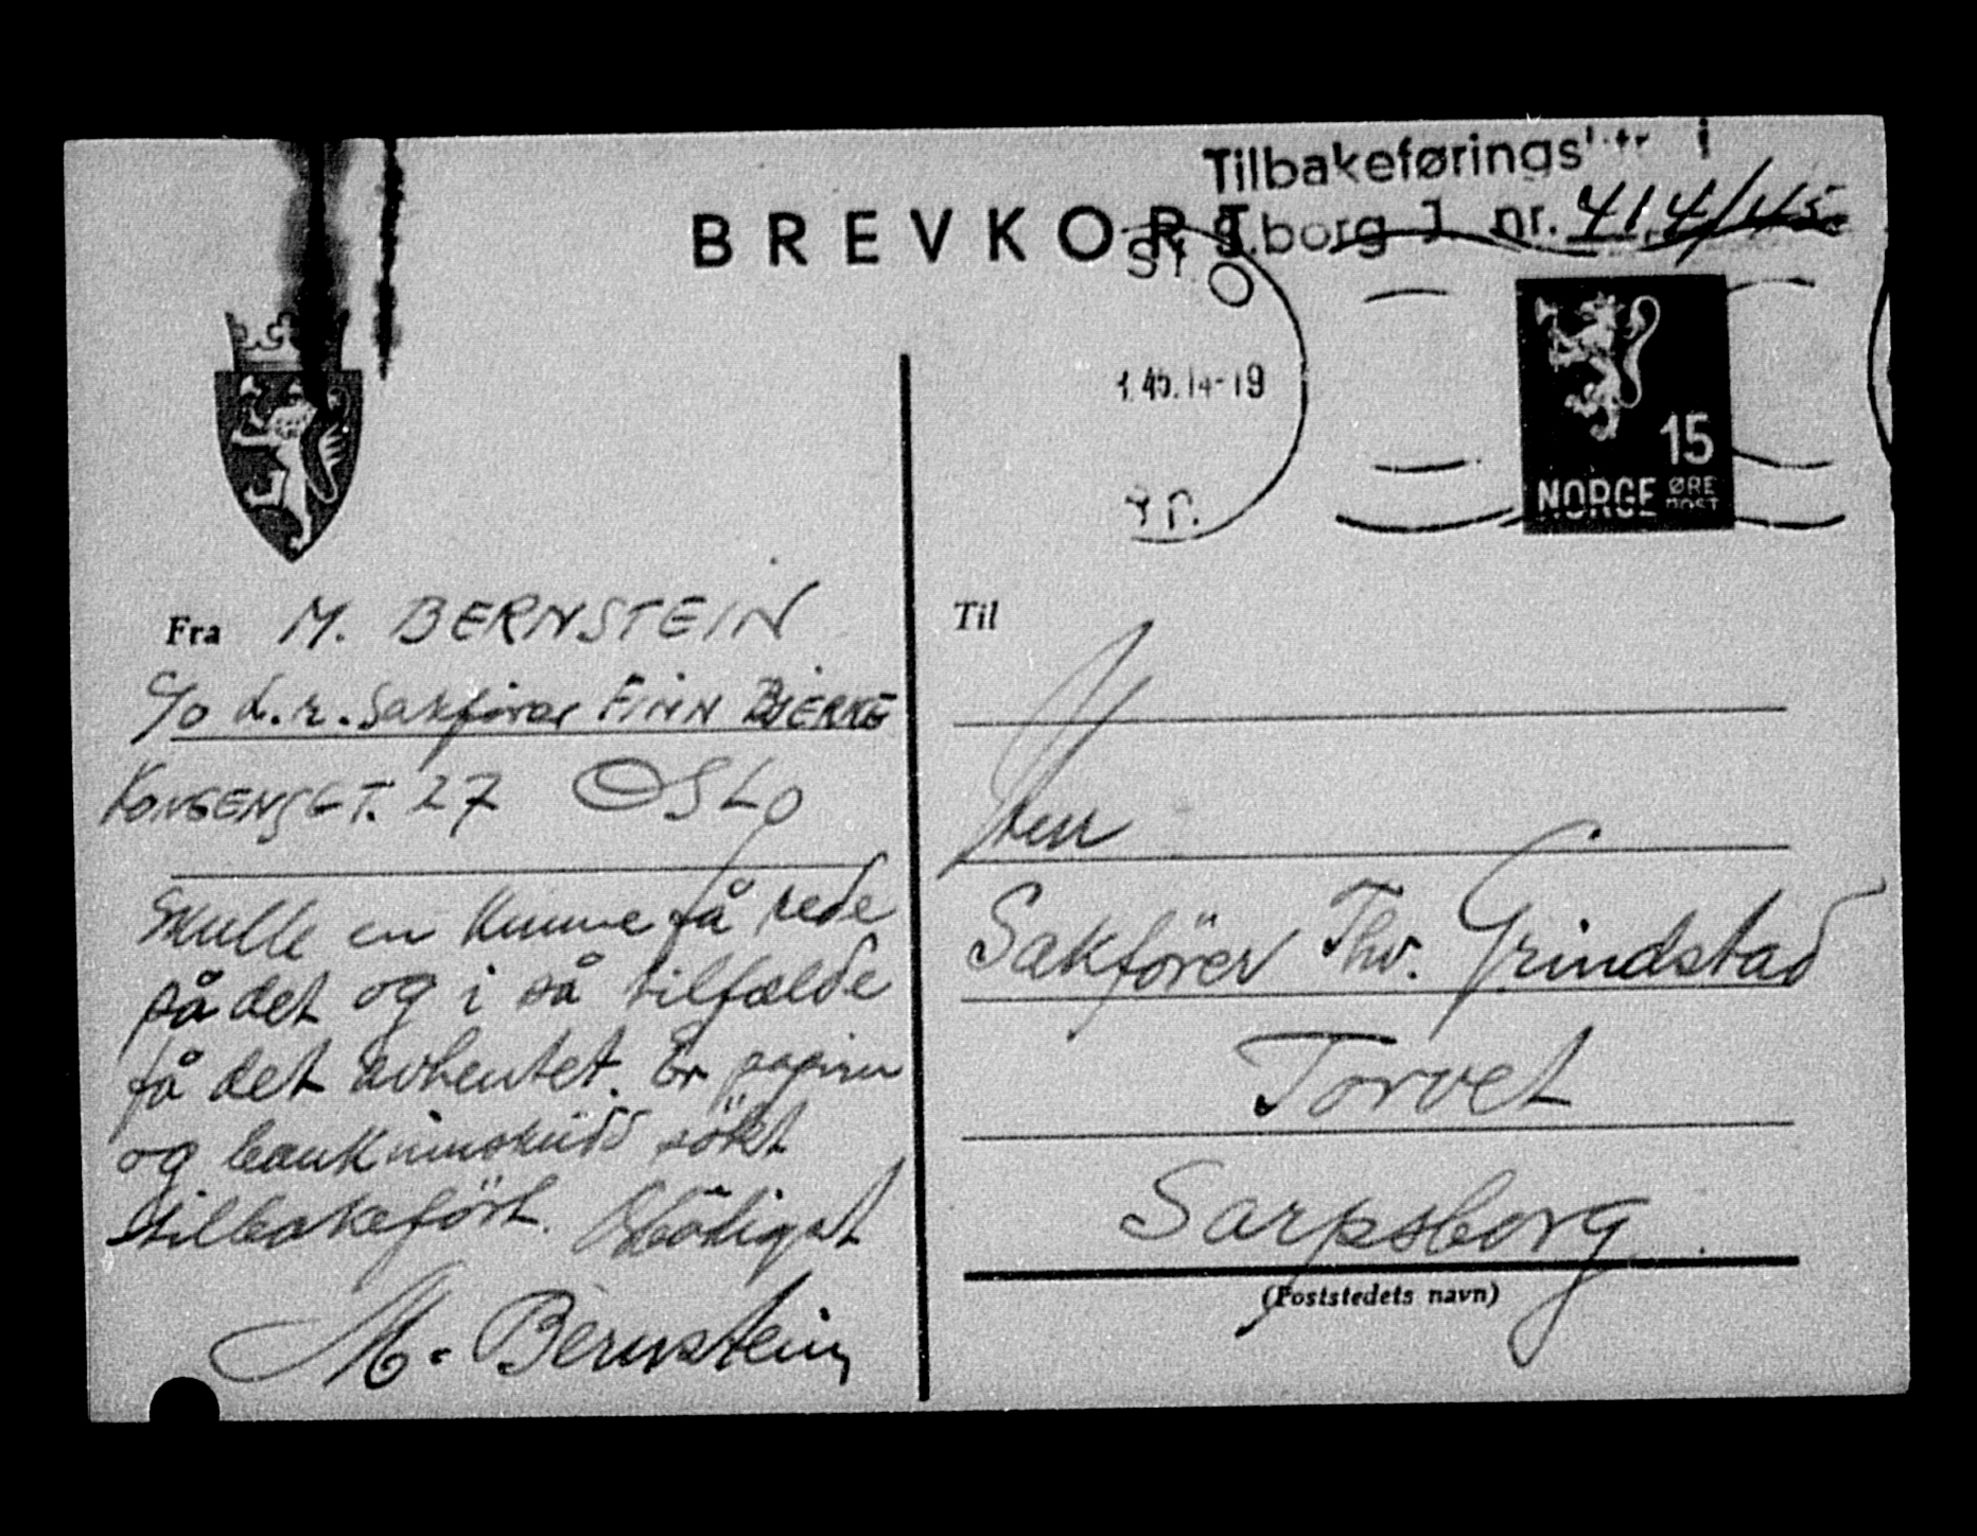 Tilbakeførings
BREVKORT
S.borg J. nr. 414/45
1.45.14-19
15
NORGE ØRE
POST
Fra M. BERNSTEIN
c/o L.r. Sakförer FINN BJERKE
KONGENSGT. 27 OSLO
Skulle en kunne få rede
på det og i så tilfælde
få det avhentet. Er papirer
og bankinnskudd søkt
tilbakefört. Ærbödigst
M. Bernstein
Til
Herr
Sakförer Thv. Grindstad
Torvet
Sarpsborg.
(Poststedets navn)